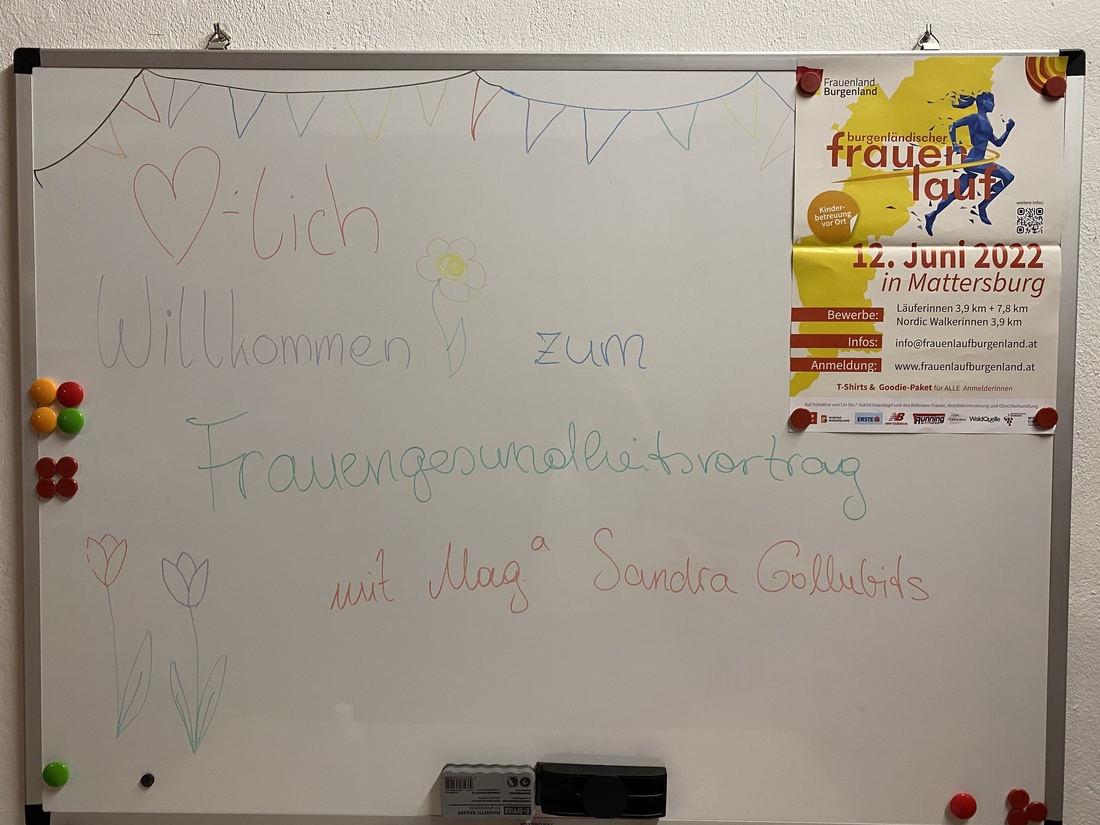 ♡-lich
Willkommen zum
Frauengesundheitsvortrag
mit Mag.ª Sandra Gollubits
Frauenland
Burgenland
burgenländischer
frauen
lauf
Kinder-
betreuung
vor Ort
weitere Infos:
12. Juni 2022
in Mattersburg
Bewerbe:
Läuferinnen 3,9 km + 7,8 km
Nordic Walkerinnen 3,9 km
Infos:
info@frauenlaufburgenland.at
Anmeldung:
www.frauenlaufburgenland.at
T-Shirts & Goodie-Paket für ALLE Anmelderinnen
Auf Initiative von LH-Stv.in Astrid Eisenkopf und des Referates Frauen, Antidiskriminierung und Gleichbehandlung
ERSTE
new balance
RUNNING
WaldQuelle
MAGNETIC ERASER